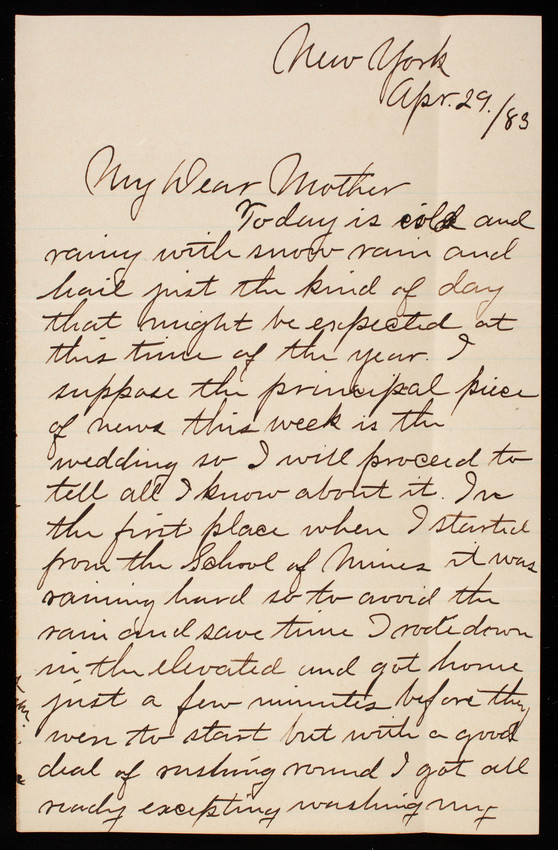 New York
Apr. 29./83
My Dear Mother
Today is cold and
rainy with snow rain and
hail just the kind of day
that might be expected at
this time of the year. I
suppose the principal piece
of news this week is the
wedding so I will proceed to
tell all I know about it. In
the first place when I started
from the School of Mines it was
raining hard so to avoid the
rain and save time I rode down
in the elevated and got home
just a few minutes before they
were to start but with a good
deal of rushing round I got all
ready excepting washing my